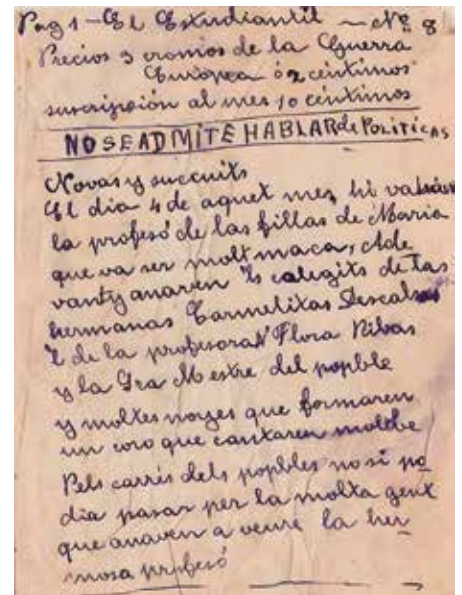 Pag 1 - El Estudiantil - Nº 8
Precios 3 cromos de la Guerra
Europea ó 2 céntimos
suscripción al mes 10 céntimos
NO SE ADMITE HABLAR de POLITICAS
Novas y succuits
El dia 4 de aquet mes hi
la profesó de las fillas de Maria
que va ser molt maca, Ade
vant y anaren los calegits de las
hermanas Carmelitas Descalsas
de la profesora Flora Ribas
y la Sra Mestre del popble
y moltes noyes que formaren
un coro que cantaren molt be
Pels carrés dels popbles no si po
dia pasar per la molta gent
que anaven a veure la her
mosa profesó